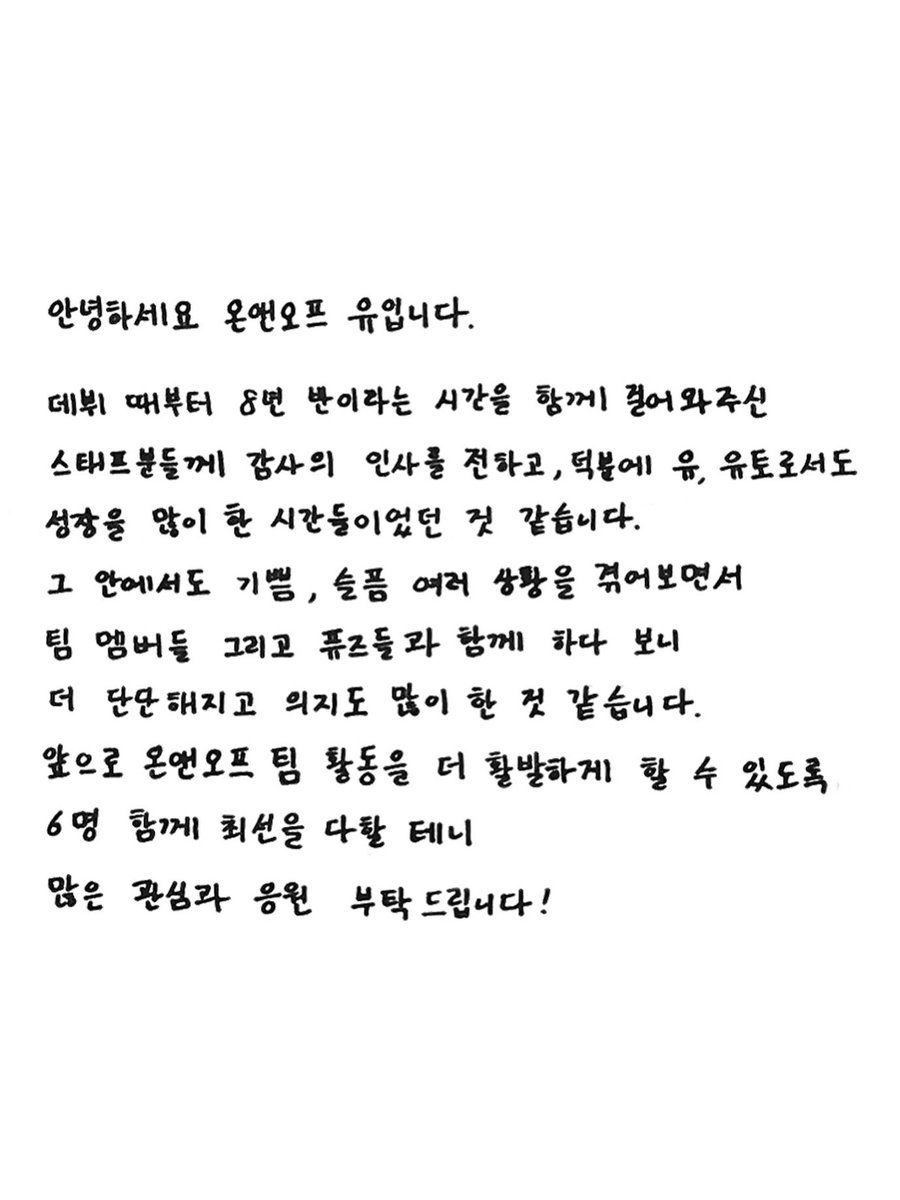 안녕하세요 온앤오프 유입니다.
데뷔 때부터 8년 반이라는 시간을 함께 걸어와주신
스태프분들께 감사의 인사를 전하고, 덕분에 유, 유토로서도
성장을 많이 한 시간들이었던 것 같습니다.
그 안에서도 기쁨, 슬픔 여러 상황을 겪어보면서
팀 멤버들 그리고 퓨즈들과 함께 하다 보니
더 단단해지고 의지도 많이 한 것 같습니다.
앞으로 온앤오프 팀 활동을 더 활발하게 할 수 있도록
6명 함께 최선을 다할 테니
많은 관심과 응원 부탁드립니다!